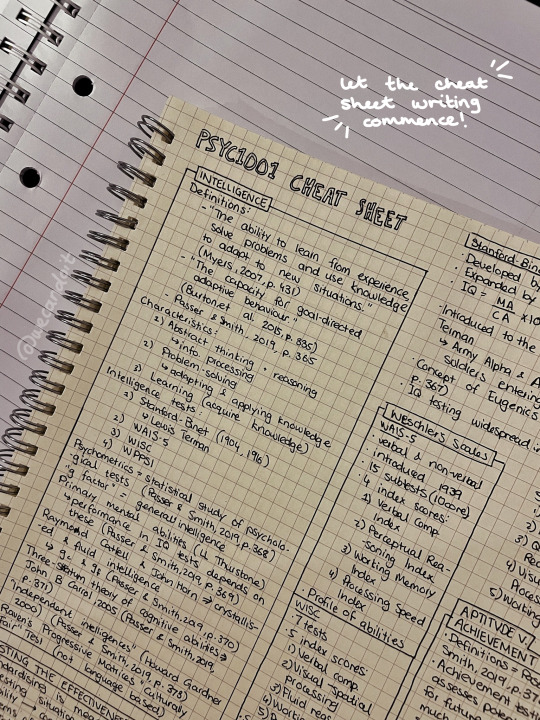 let the cheat
sheet writing
commence!
@wecandoit
PSYC1001 CHEAT SHEET
INTELLIGENCE
Definitions:
- "The ability to learn from experience
solve problems and use knowledge
to adapt to new situations."
(Myers, 2007, p. 431)
- "The capacity for goal-directed
adaptive behaviour."
(Burton et al. 2015, p. 835)
- Passer & Smith, 2019, p. 365
Characteristics:
1) Abstract thinking + reasoning
↳ info processing
2) Problem-solving
↳ adapting & applying knowledge
3) Learning (acquire knowledge)
Intelligence tests:
1) Stanford-Binet (1904, 1916)
↳ Lewis Terman
2) WAIS-5
3) WISC
4) WPPSI
Psychometrics = statistical study of psycholo-
gical tests (Passer & Smith, 2019, p. 368)
"g factor" = general intelligence
Primary mental abilities (L Thurstone)
↳ performance in IQ tests depends on
these (Passer & Smith, 2019, p. 369)
Raymond Cattell & John Horn ⇒ crystallis-
ed & fluid intelligence
↳ gc & gf (Passer & Smith, 2019, p. 370)
Three-stratum theory of cognitive abilities ⇒
John B Carrol 2005 (Passer & Smith, 2019,
p. 371)
"Independent intelligences" (Howard Gardner
2000) (Passer & Smith, 2019, p. 373)
Raven's Progressive Matrices "Culturally
Fair" Test (not language based)
TESTING THE EFFECTIVENESS
Stanford-Bine
· Developed by
· Expanded by
· IQ = MA/CA × 10
· Introduced to the
Terman
↳ Army Alpha & A
Soldiers entering
· Concept of Eugenics
p. 367)
· IQ testing widespread in
Weschler's Scales
WAIS-5
· verbal & non-verbal
· introduced 1939
· 15 subtests (10 core)
· 4 index scores:
1) Verbal Comp.
Index
2) Perceptual Rea-
soning Index
3) Working Memory
Index
4) Processing Speed
Index
· Profile of abilities
WISC
· 7 tests
· 5 index scores:
1) Verbal Comp.
2) Visual Spatial
processing
3) Fluid reas
4) Working
APTITUDE V.
ACHIEVEMENT
· Definitions = Pass
Smith, 2019, p. 37
· Achievement test
assesses
for futur
much